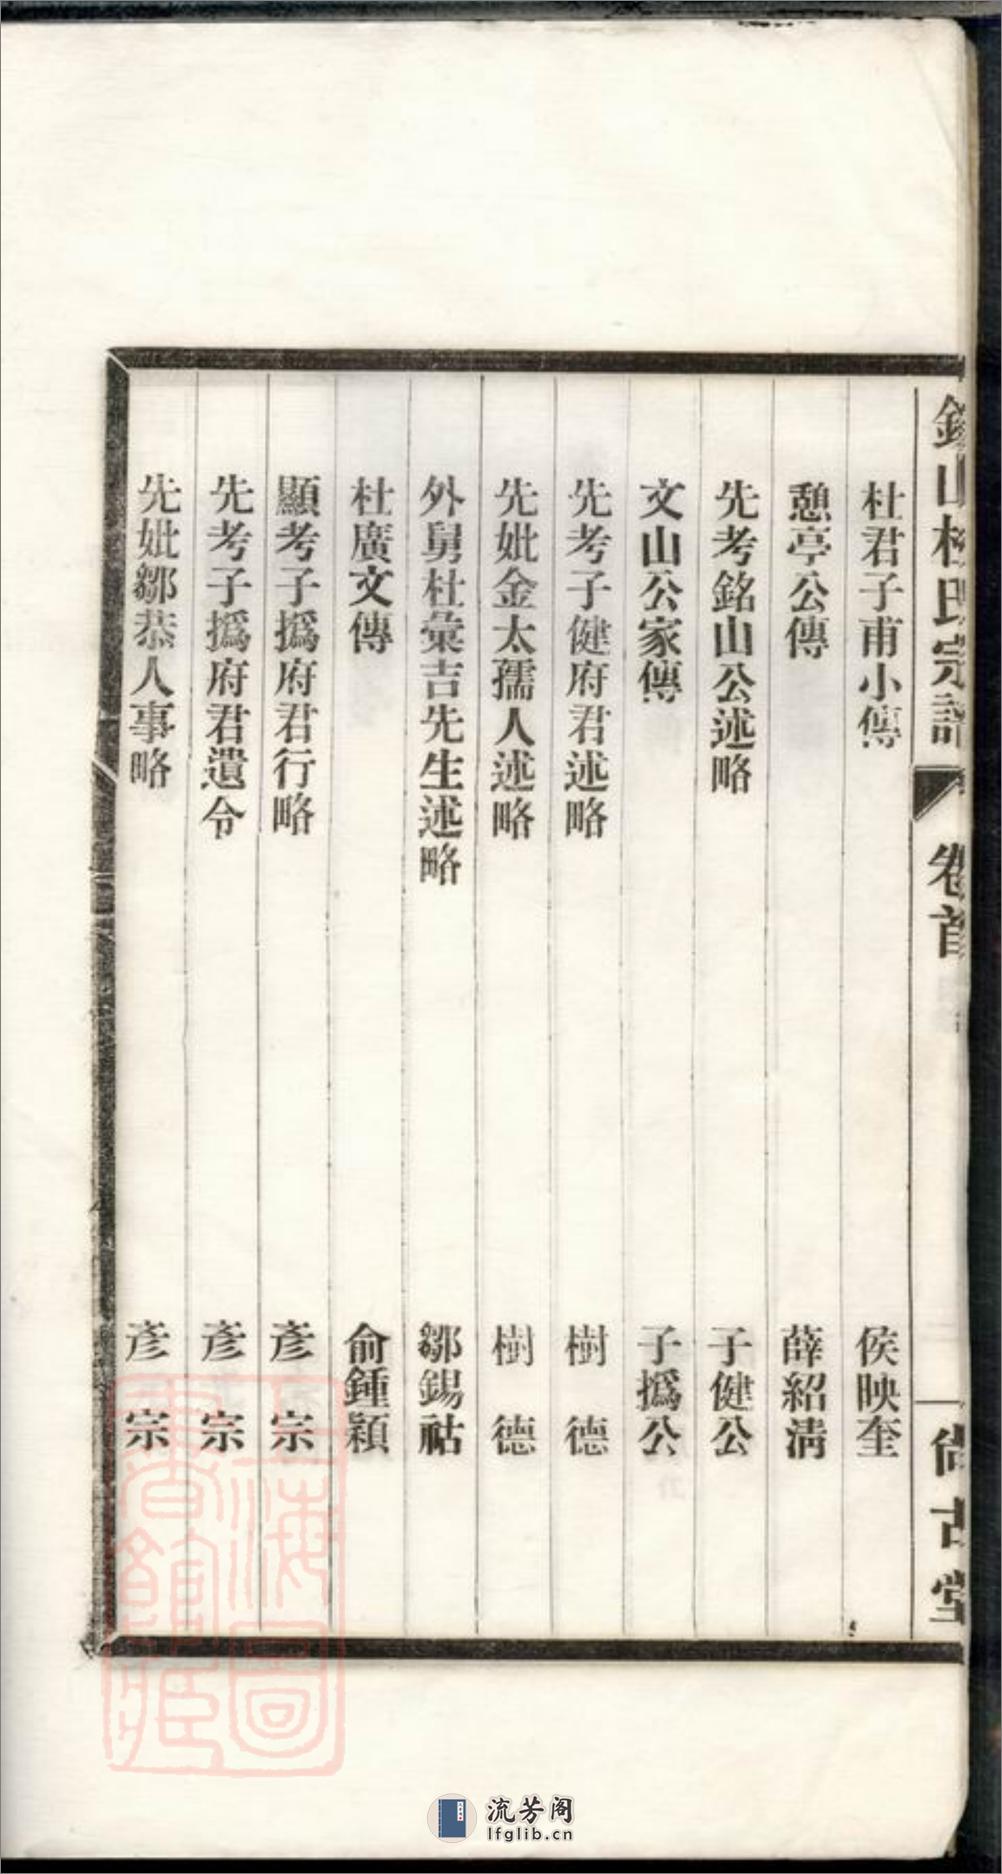 錫山杜氏宗譜 卷首 尙古堂
杜君子甫小傳 侯映奎
憩亭公傳 薛紹淸
先考銘山公述略 子健公
文山公家傳 子撝公
先考子健府君述略 樹德
先妣金太孺人述略 樹德
外舅杜彙吉先生述略 鄒錫祜
杜廣文傳 俞鍾穎
顯考子撝府君行略 彥宗
先考子撝府君遺令 彥宗
先妣鄒恭人事略 彥宗
上海圖書館藏
流芳阁
lfglib.cn